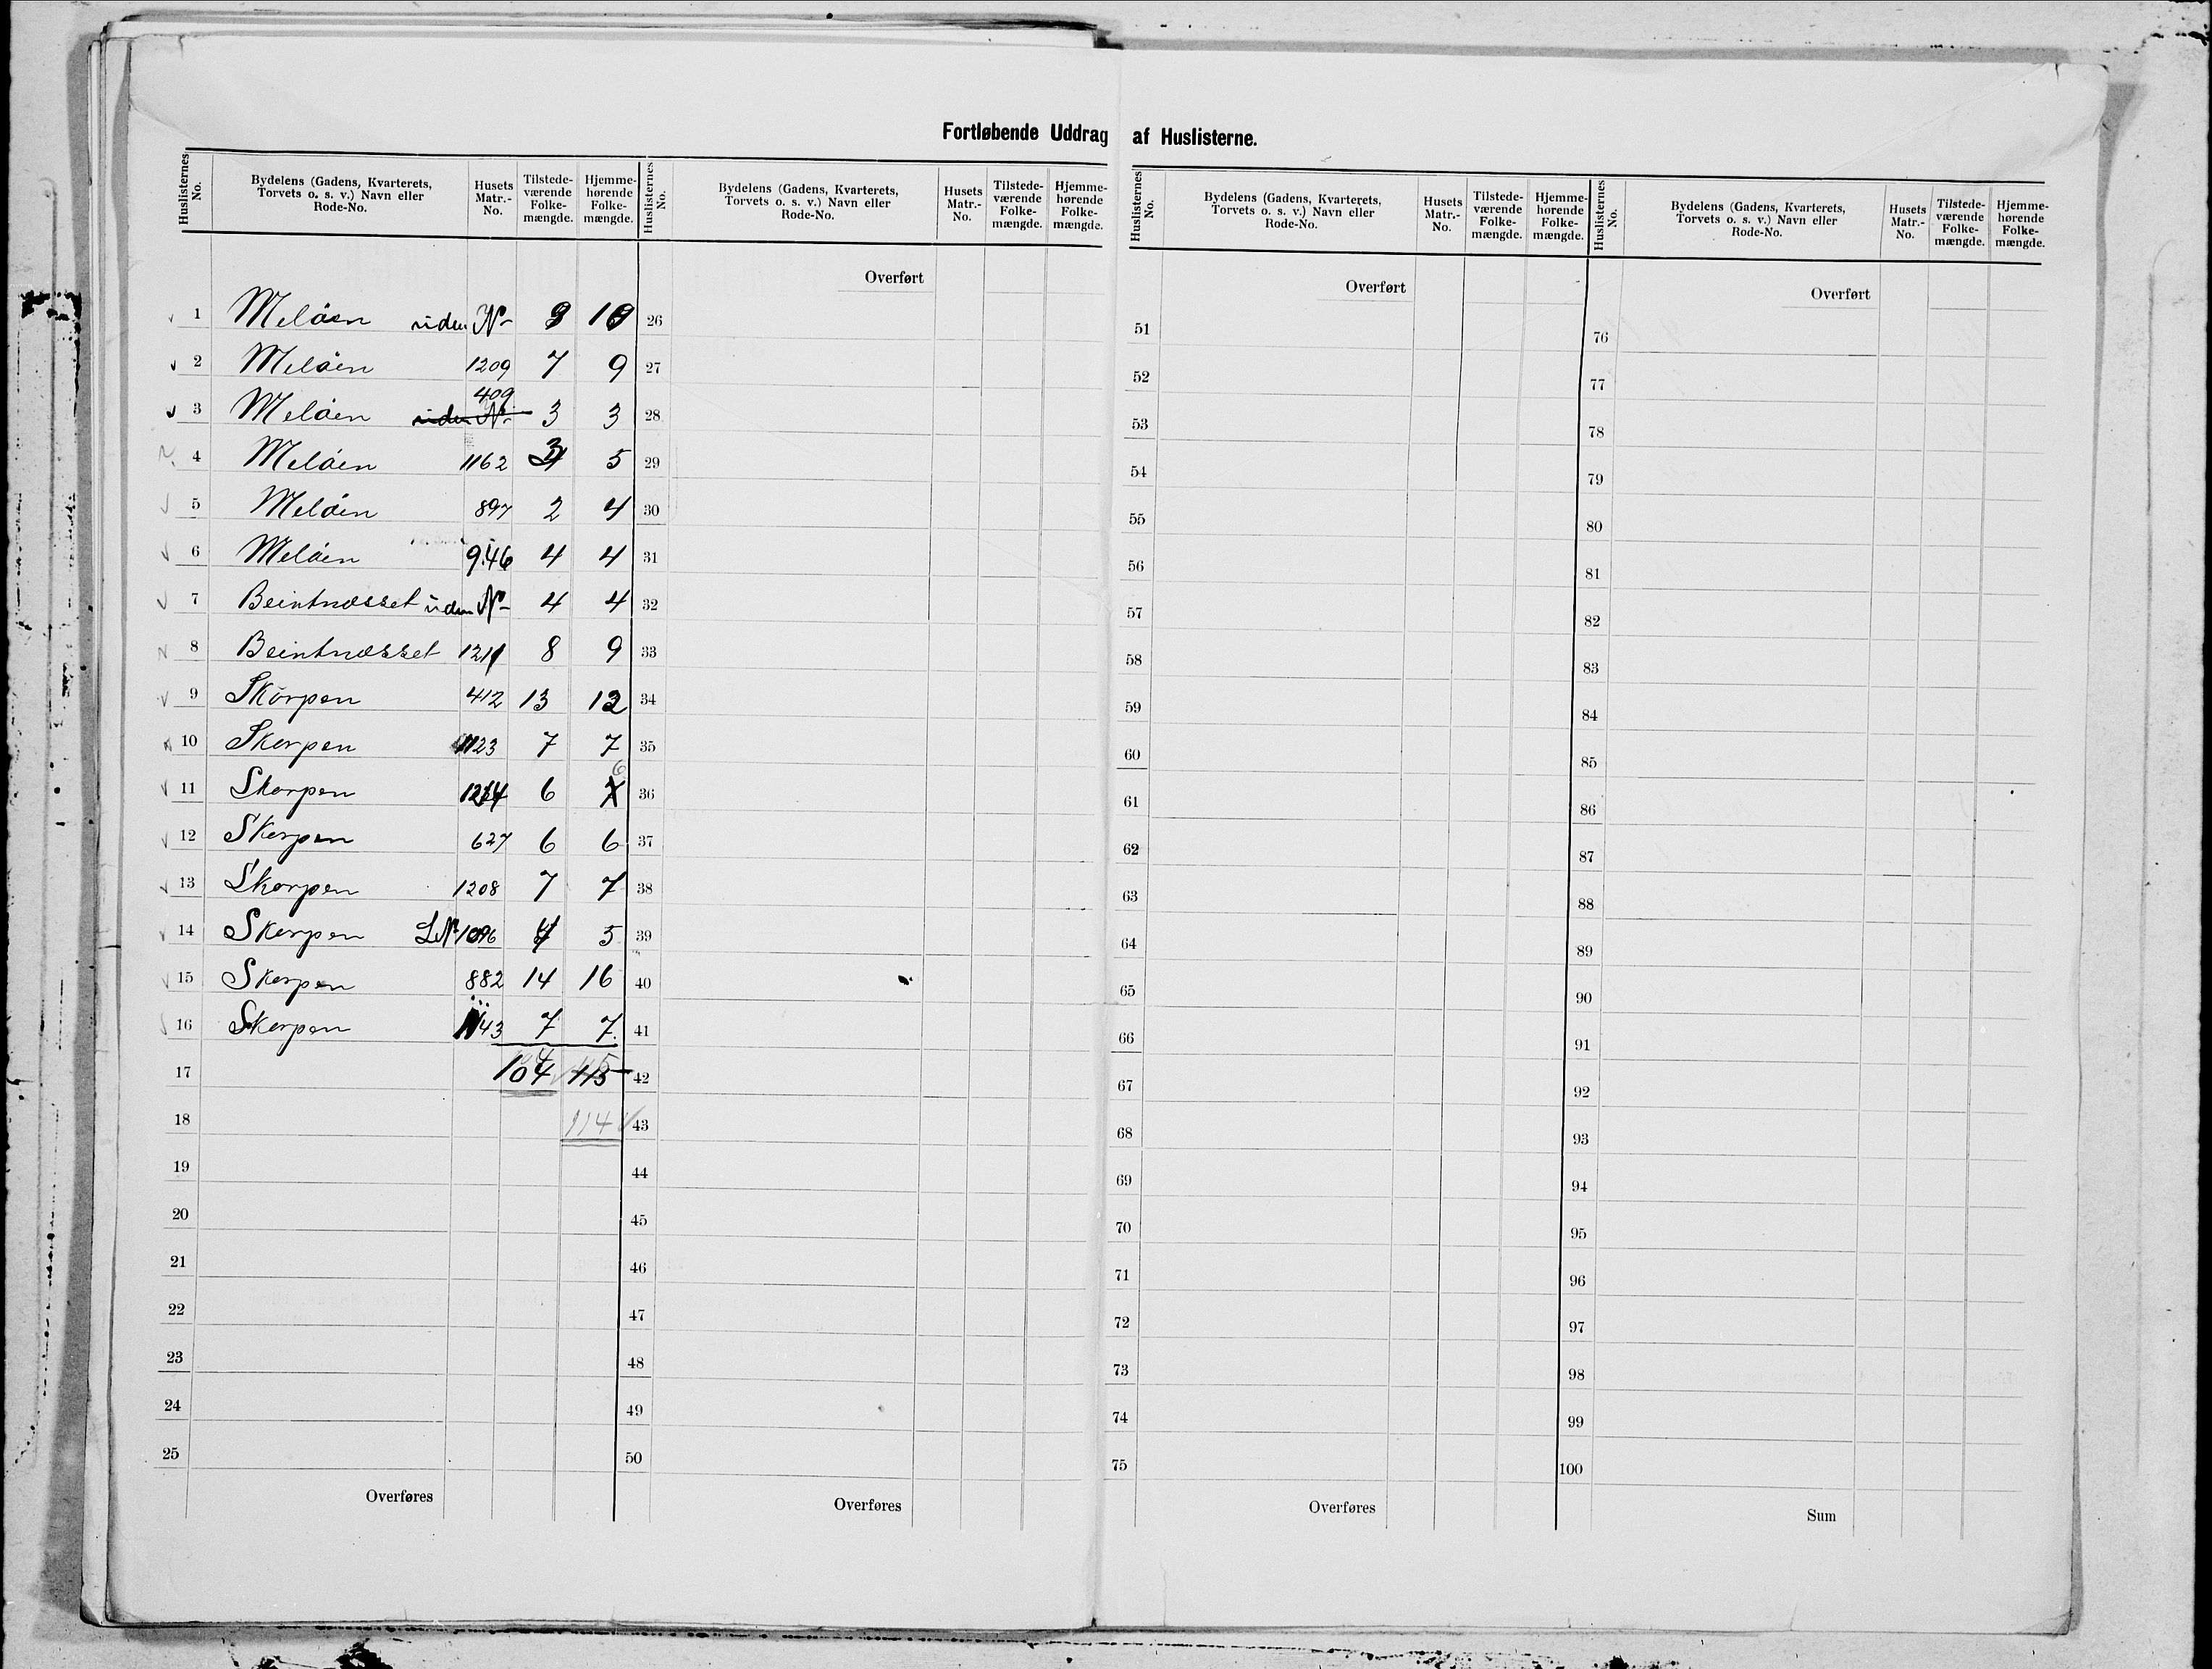 Fortløbende Uddrag af Huslisterne.
Huslisternes No. | Bydelens (Gadens, Kvarterets, Torvets o. s. v.) Navn eller Rode-No. | Husets Matr.-No. | Tilstede-værende Folke-mængde. | Hjemme-hørende Folke-mængde.
Huslisternes No. | Bydelens (Gadens, Kvarterets, Torvets o. s. v.) Navn eller Rode-No. | Husets Matr.-No. | Tilstede-værende Folke-mængde. | Hjemme-hørende Folke-mængde.
Huslisternes No. | Bydelens (Gadens, Kvarterets, Torvets o. s. v.) Navn eller Rode-No. | Husets Matr.-No. | Tilstede-værende Folke-mængde. | Hjemme-hørende Folke-mængde.
Huslisternes No. | Bydelens (Gadens, Kvarterets, Torvets o. s. v.) Navn eller Rode-No. | Husets Matr.-No. | Tilstede-værende Folke-mængde. | Hjemme-hørende Folke-mængde.
1 Meløen uden No 9 10
2 Meløen 1209 7 9
409
3 Meløen uden No 3 3
4 Meløen 1162 3 5
5 Meløen 897 2 4
6 Meløen 946 4 4
7 Beintnæsset uden No 4 4
8 Beintnæsset 1211 8 9
9 Skorpen 412 13 12
10 Skorpen 1123 7 7
6
11 Skorpen 6 7
12 Skorpen 627 6 6
13 Skorpen 1208 7 7
14 Skorpen LNo 1096 4 5
15 Skorpen 882 14 16
16 Skorpen 1143 7 7
17 104 115
18 114
19
20
21
22
23
24
25
Overføres
Overført
26
27
28
29
30
31
32
33
34
35
36
37
38
39
40
41
42
43
44
45
46
47
48
49
50
Overføres
Overført
51
52
53
54
55
56
57
58
59
60
61
62
63
64
65
66
67
68
69
70
71
72
73
74
75
Overføres
Overført
76
77
78
79
80
81
82
83
84
85
86
87
88
89
90
91
92
93
94
95
96
97
98
99
100
Sum